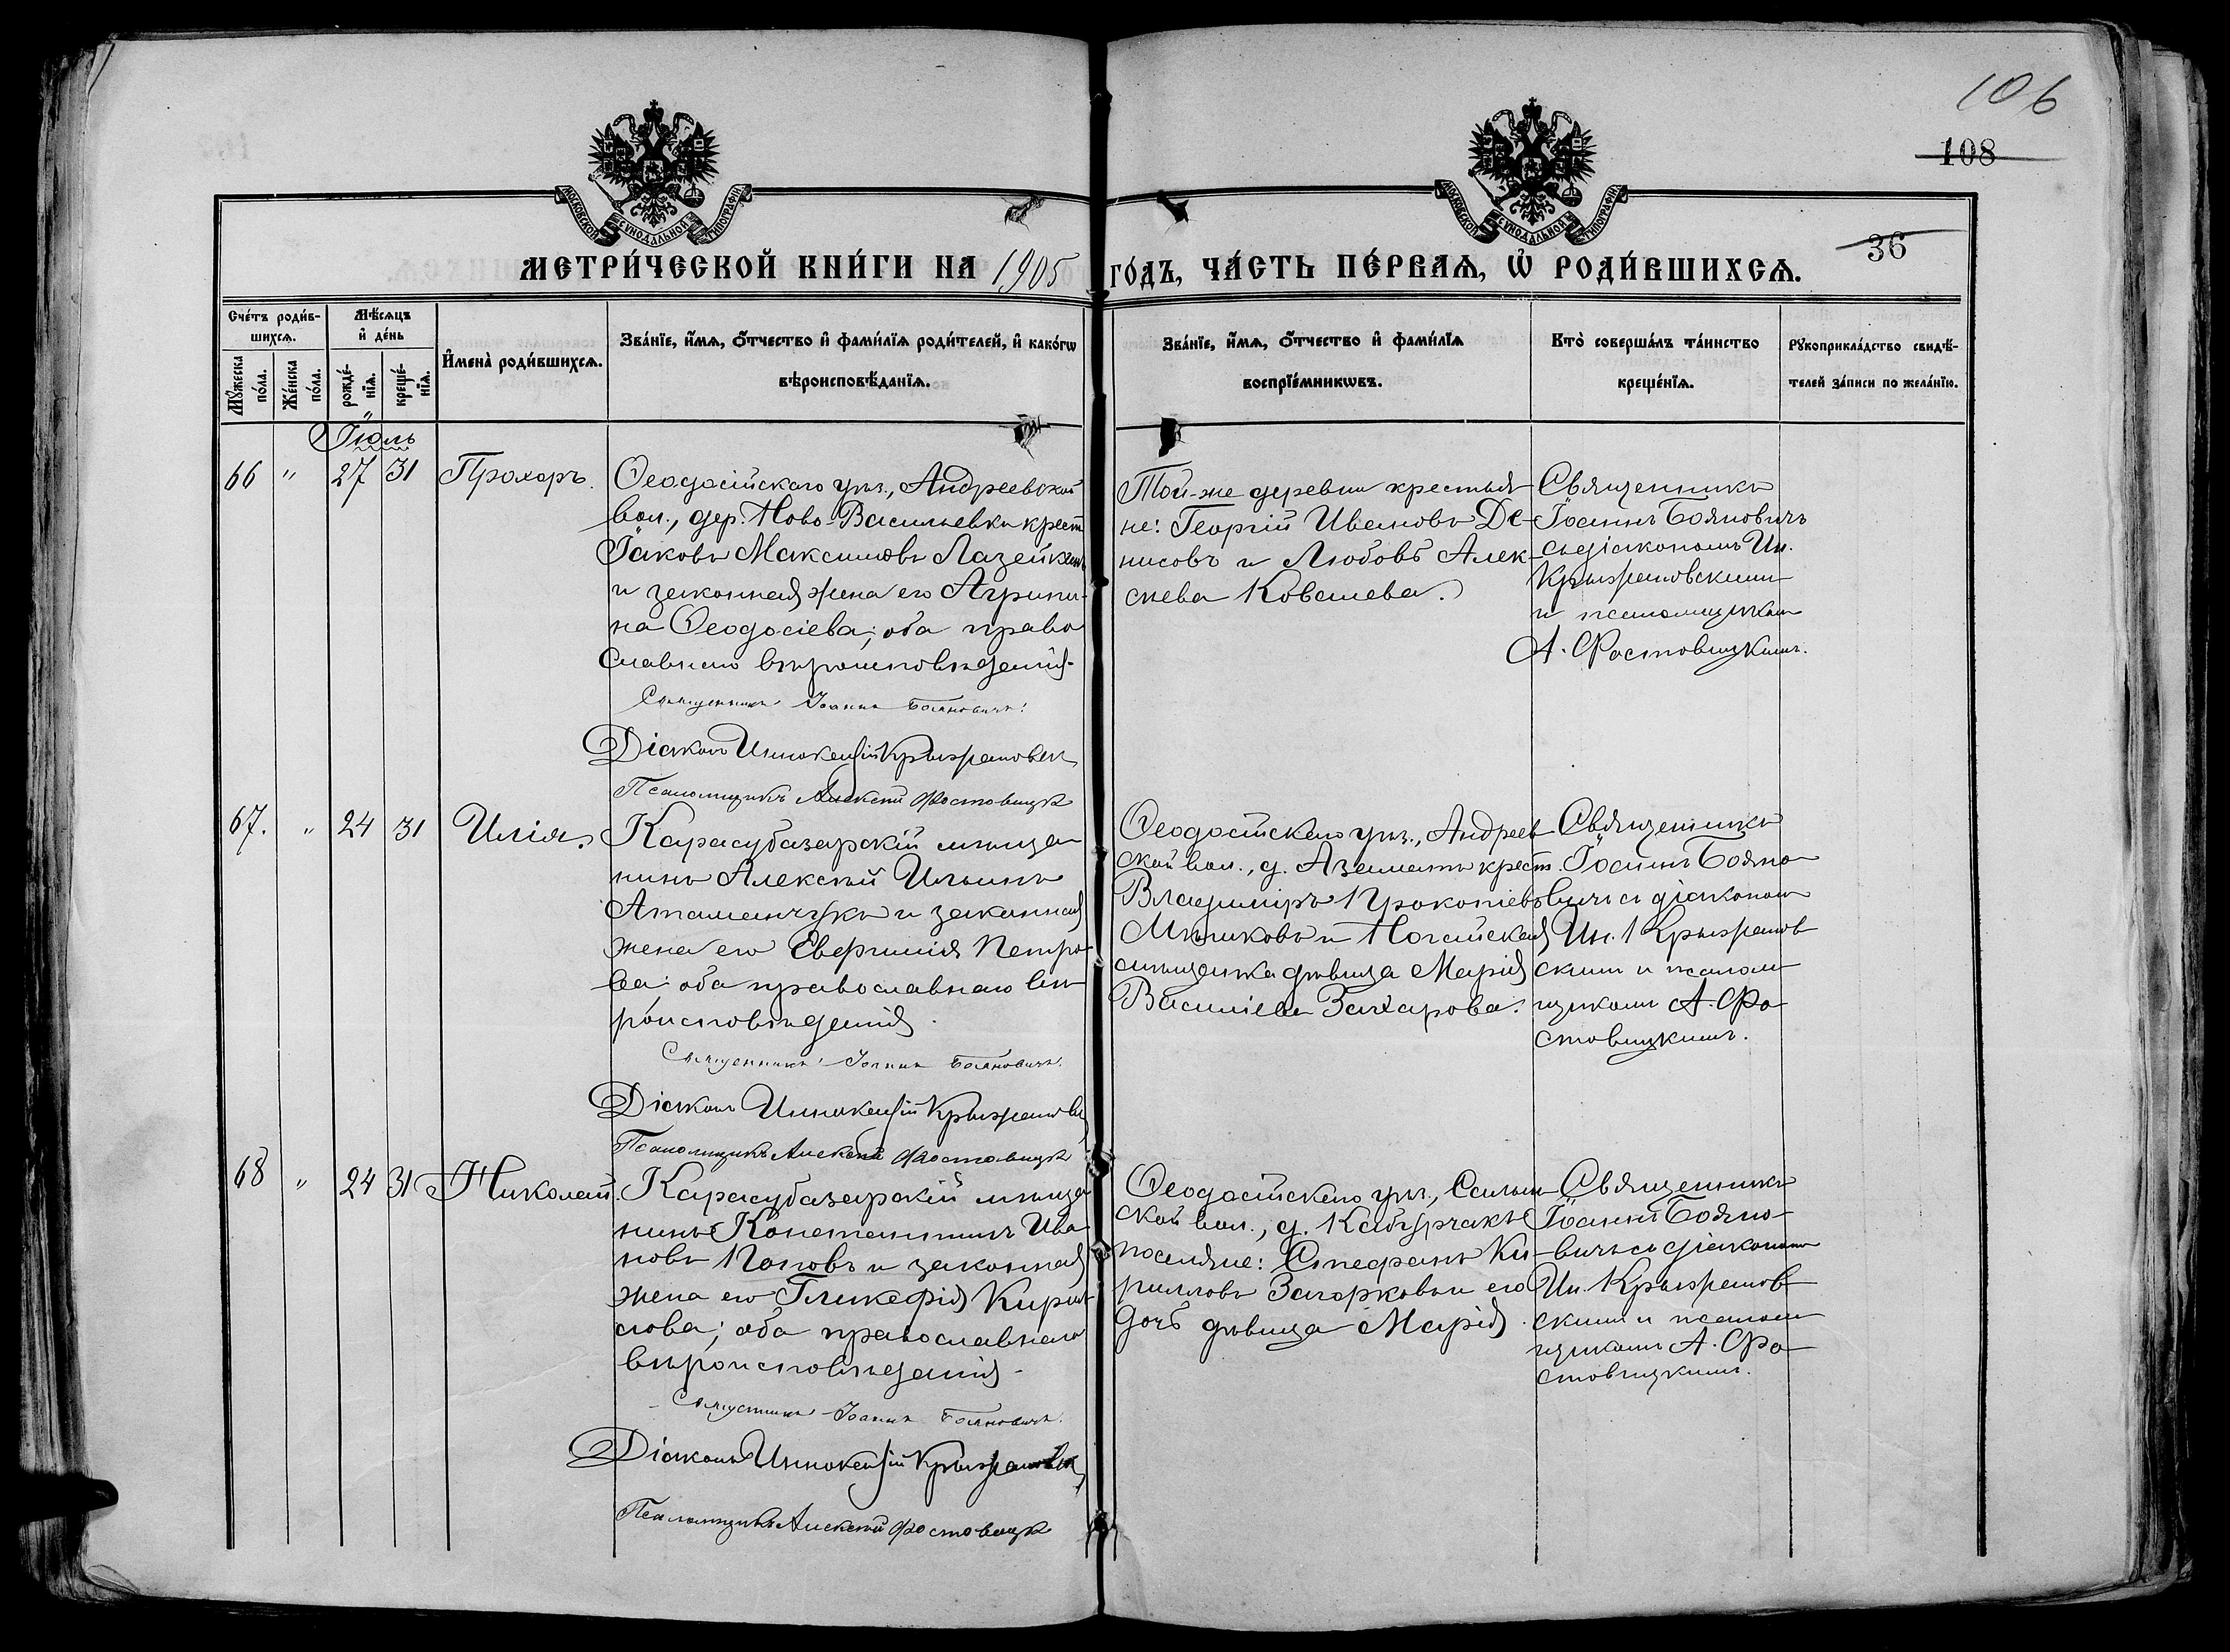 106
108
36
МОСКОВСКОЙ СѴНОДАЛЬНОЙ ТИПОГРАФІИ
МОСКОВСКОЙ СѴНОДАЛЬНОЙ ТИПОГРАФІИ
МЕТРИ́ЧЕСКОЙ КНИ́ГИ НА 1905 ГО́ДЪ, ЧА́СТЬ ПЕ́РВАѦ, Ѽ РОДИ́ВШИХСѦ.
Счє́тъ роди́в-
шихсѧ.
Мѣ́сѧцъ
и҆ де́нь
Мꙋ́жеска по́ла.
Же́нска по́ла.
рожде́-
нїѧ.
креще́-
нїѧ.
И҆мена̀ роди́вшихсѧ.
Зва́нїе, и҆́мѧ, ѻ҆́тчество и҆ фами́лїѧ роди́телей, и҆ како́гѡ
вѣроисповѣ́данїѧ.
Зва́нїе, и҆́мѧ, ѻ҆́тчество и҆ фами́лїѧ
воспрїе́мникѡвъ.
Кто̀ соверша́лъ та́инство
креще́нїѧ.
Рꙋкоприкла́дство свидѣ́-
телей за́писи по жела́нїю.
Іюль
66 " 27 31 Прохоръ.
Ѳеодосійскаго уѣз., Андреевской
вол., дер. Ново-Васильевки крест.
Іаковъ Максимовъ Лазейкинъ
и законная жена его Агрипи-
на Ѳеодосіева; оба право
славнаго вѣроисповѣданія.
Священникъ Іоаннъ Бояновичъ.
Діаконъ Иннокентій Крыжановск
Псаломщикъ Алексѣй Фостовицк
Той-же деревни крестья-
не: Георгій Ивановъ Де-
нисовъ и Любовь Алек-
сѣева Ковалева.
Священникъ
Іоаннъ Бояновичъ
съ діакономъ Ин.
Крыжановскимъ
и псаломщикомъ
А. Фостовицкимъ.
67. " 24 31 Илія.
Карасубазарскій мѣща-
нинъ Алексѣй Ильинъ
Атаманчукъ и законная
жена его Евфимія Петро-
ва; оба православнаго вѣ-
роисповѣданія.
Священникъ Іоаннъ Бояновичъ.
Діаконъ Иннокентій Крыжановск
Псаломщикъ Алексѣй Фостовицк
Ѳеодосійскаго уѣз., Андреев-
ской вол., д. Азаматъ крест.
Владиміръ Прокопіевъ
Мѣшковъ и Ногайская
мѣщанка дѣвица Марія
Василіева Захарова.
Священникъ
Іоаннъ Бояно-
вичъ съ діакономъ
Ин. Крыжанов-
скимъ и псалом-
щикомъ А. Фо-
стовицкимъ.
68 " 24 31 Николай.
Карасубазарскій мѣща-
нинъ Константинъ Ива-
новъ Поповъ и законная
жена его Гликерія Кирил-
лова; оба православнаго
вѣроисповѣданія.
Священникъ Іоаннъ Бояновичъ.
Діаконъ Иннокентій Крыжановск
Псаломщикъ Алексѣй Фостовицк
Ѳеодосійскаго уѣз., Салын-
ской вол., д. Кабурчакъ
поселяне: Стефанъ Ки-
рилловъ Загорковъ и его
дочь дѣвица Марія.
Священникъ
Іоаннъ Бояно-
вичъ съ діакономъ
Ин. Крыжанов-
скимъ и псалом-
щикомъ А. Фо-
стовицкимъ.